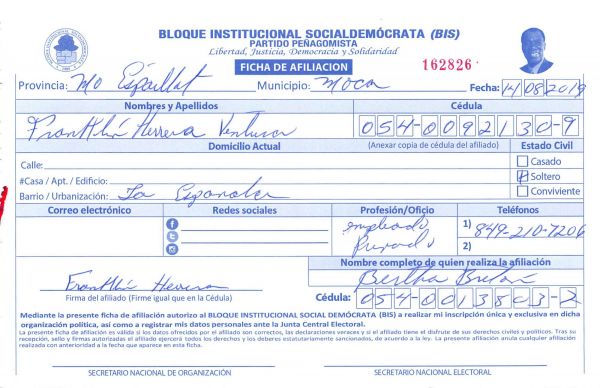 BLOQUE INSTITUCIONAL SOCIALDEMÓCRATA (BIS)
PARTIDO PEÑAGOMISTA
Libertad, Justicia, Democracia y Solidaridad
FICHA DE AFILIACION
162826
Provincia: Espaillat Municipio: Moca Fecha: 14/08/2019
Nombres y Apellidos Cédula
Franklin Herrera Ventura 054-0092130-9
Domicilio Actual (Anexar copia de cédula del afiliado) Estado Civil
Calle: Casado
#Casa / Apt. / Edificio: Soltero
Barrio / Urbanización: La Conviviente
Correo electrónico Redes sociales Profesión/Oficio Teléfonos
empleado 1) 849-210-7206
Privado 2)
Nombre completo de quien realiza la afiliación
Franklin Herrera Bertha
Firma del afiliado (Firme igual que en la Cédula) Cédula: 054-0013803-2
Mediante la presente ficha de afiliación autorizo al BLOQUE INSTITUCIONAL SOCIAL DEMÓCRATA (BIS) a realizar mi inscripción única y exclusiva en dicha
organización política, así como a registrar mis datos personales ante la Junta Central Electoral.
La presente ficha de afiliación es válida si los datos ofrecidos por el afiliado son correctos, las declaraciones veraces y si el afiliado tiene el disfrute de sus derechos civiles y políticos. Tras su
recepción, sello y firmas autorizadas el afiliado ejercerá todos los derechos y los deberes estatutariamente sancionados, de acuerdo a la ley. La presente afiliación anula cualquier afiliación
realizada con anterioridad a la fecha que aparece en esta ficha.
SECRETARIO NACIONAL DE ORGANIZACIÓN SECRETARIO NACIONAL ELECTORAL